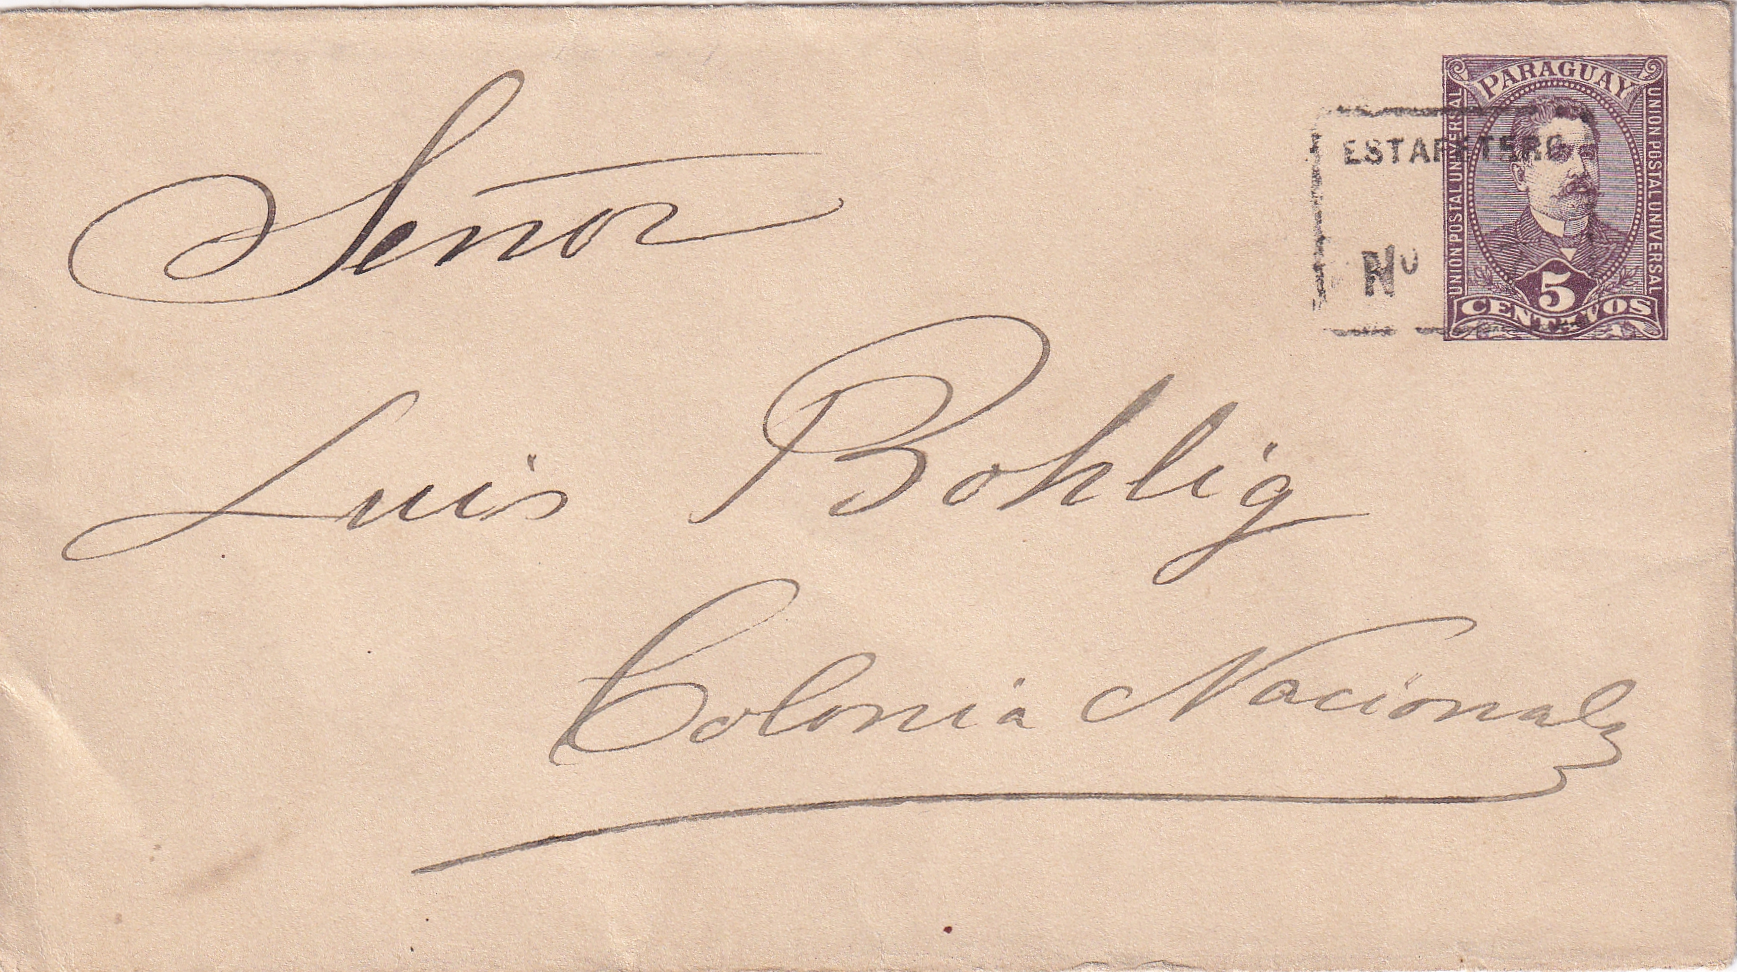 PARAGUAY
UNION POSTAL UNIVERSAL
UNION POSTAL UNIVERSAL
5
CENTAVOS
ESTAFETERO
Nº
Señor
Luis Bohlig
Colonia Nacional